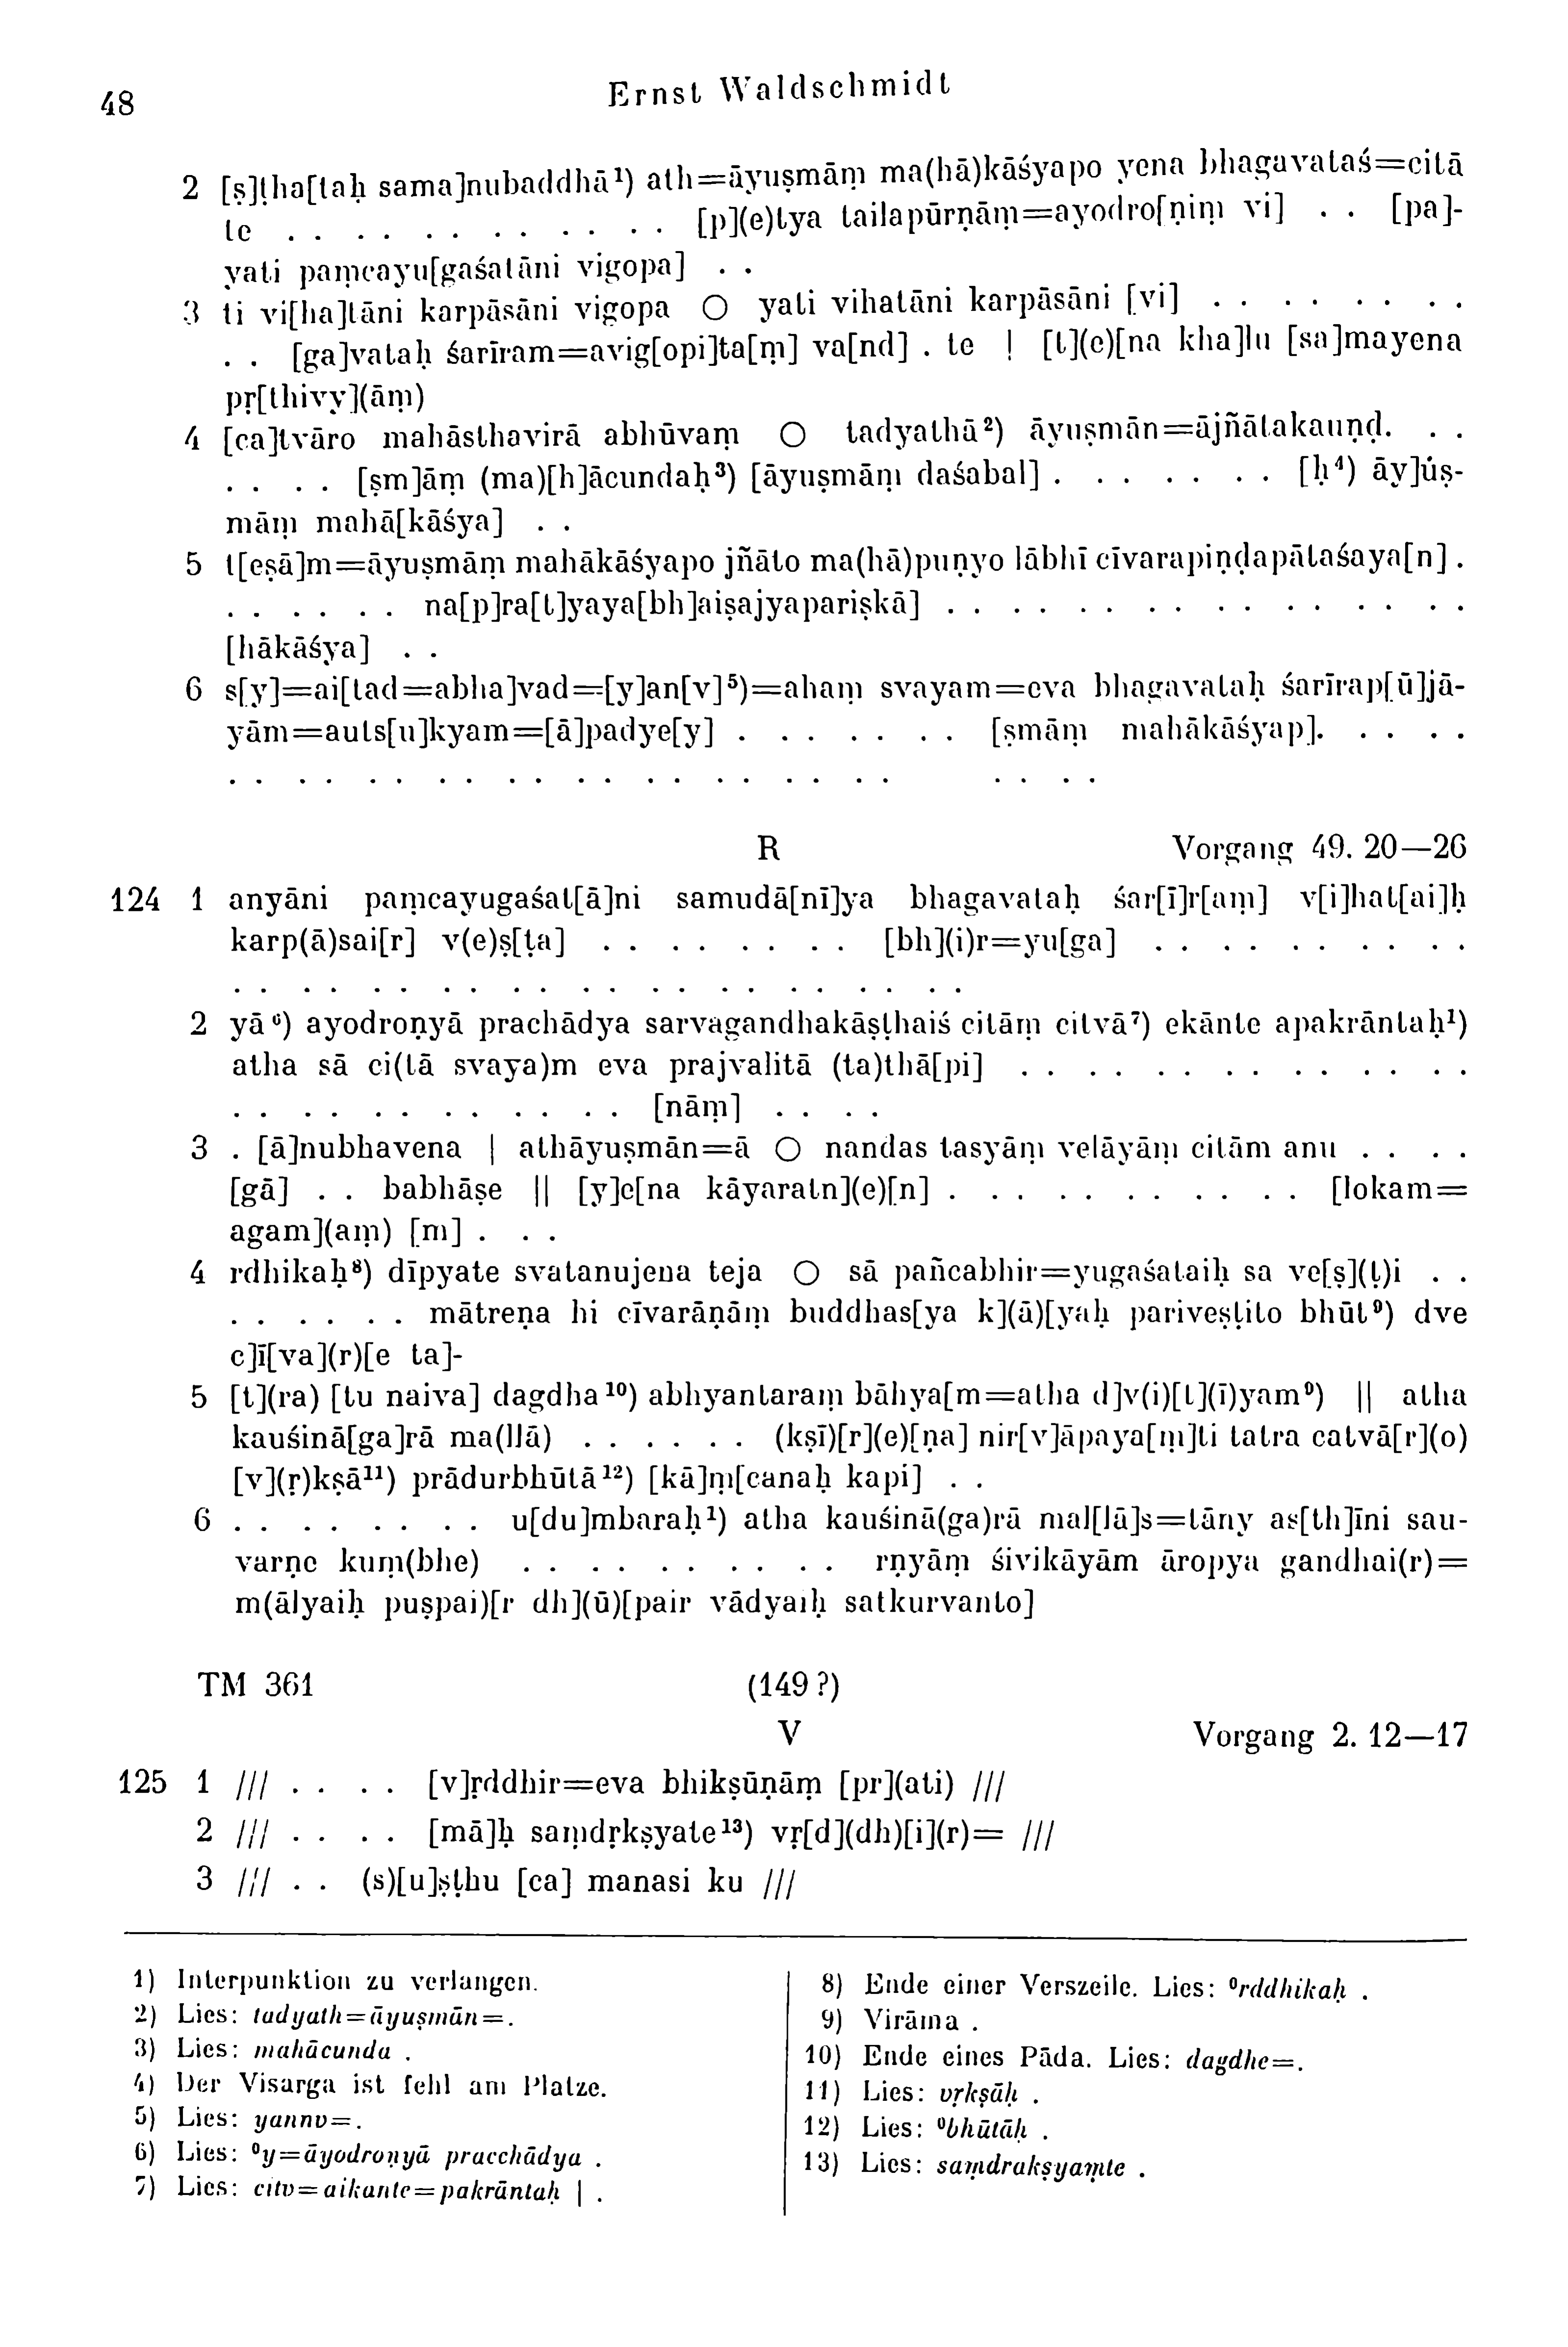 48 Ernst Waldschmidt
2 [ṣ]ṭha[taḥ sama]nubaddhā¹) ath=āyuṣmāṃ ma(hā)kāśyapo yena bhagavataś=citā
te . . . . . . . . . . . . [p](e)tya tailapūrṇām=ayodro[ṇiṃ vi] . . [pa]-
yati paṃcayu[gaśatāni vigopa] . .
3 ti vi[ha]tāni karpāsāni vigopa ○ yati vihatāni karpāsāni [vi] . . . . . . . .
. . [ga]vataḥ śarīram=avig[opi]ta[ṃ] va[nd] . te | [t](e)[na kha]lu [sa]mayena
pṛ[thivy](āṃ)
4 [ca]tvāro mahāsthavirā abhūvaṃ ○ tadyathā²) āyuṣmān=ājñātakauṇḍ. . .
. . . . [ṣm]āṃ (ma)[h]ācundaḥ³) [āyuṣmāṃ daśabal] . . . . . . . [ḥ⁴) āy]uṣ-
māṃ mahā[kāśya] . .
5 t[eṣā]m=āyuṣmāṃ mahākāśyapo jñāto ma(hā)puṇyo lābhī cīvarapiṇḍapātaśaya[n] .
. . . . . . na[p]ra[t]yaya[bh]aiṣajyapariṣkā] . . . . . . . . . . . . . . . .
[hākāśya] . .
6 s[y]=ai[tad=abha]vad=[y]an[v]⁵)=ahaṃ svayam=eva bhagavataḥ śarīrap[ū]jā-
yām=auts[u]kyam=[ā]padye[y] . . . . . . . [ṣmāṃ mahākāśyap]. . . . .
. . . . . . . . . . . . . . . . . . . . . . . .
R Vorgang 49. 20—26
124 1 anyāni paṃcayugaśat[ā]ni samudā[nī]ya bhagavataḥ śar[ī]r[aṃ] v[i]hat[ai]ḥ
karp(ā)sai[r] v(e)ṣ[ṭa] . . . . . . . . [bh](i)r=yu[ga] . . . . . . . . . .
. . . . . . . . . . . . . . . . . . . . . .
2 yā⁶) ayodroṇyā prachādya sarvagandhakāṣṭhaiś citāṃ citvā⁷) ekānte apakrāntaḥ¹)
atha sā ci(tā svaya)m eva prajvalitā (ta)thā[pi] . . . . . . . . . . . . . .
. . . . . . . . . . . . [nāṃ] . . . .
3 . [ā]nubhavena | athāyuṣmān=ā ○ nandas tasyāṃ velāyāṃ citām anu . . . .
[gā] . . babhāṣe || [y]e[na kāyaratn](e)[n] . . . . . . . . . . . [lokam=
agam](aṃ) [m] . . .
4 rdhikaḥ⁸) dīpyate svatanujena teja ○ sā pañcabhir=yugaśataiḥ sa ve[ṣ](ṭ)i . .
. . . . . . mātreṇa hi cīvarāṇāṃ buddhas[ya k](ā)[yaḥ pariveṣṭito bhūt⁹) dve
c]ī[va](r)[e ta]-
5 [t](ra) [tu naiva] dagdha¹⁰) abhyantaraṃ bāhya[m=atha d]v(i)[t](ī)yam⁹) || atha
kauśinā[ga]rā ma(llā) . . . . . . (kṣī)[r](e)[ṇa] nir[v]āpaya[ṃ]ti tatra catvā[r](o)
[v](ṛ)kṣā¹¹) prādurbhūtā¹²) [kā]ṃ[canaḥ kapi] . .
6 . . . . . . . . u[du]mbaraḥ¹) atha kauśinā(ga)rā mal[lā]s=tāny as[th]īni sau-
varṇe kuṃ(bhe) . . . . . . . . . . rṇyāṃ śivikāyām āropya gandhai(r)=
m(ālyaiḥ puṣpai)[r dh](ū)[pair vādyaiḥ satkurvanto]
TM 361 (149?)
V Vorgang 2. 12—17
125 1 /// . . . . [v]ṛddhir=eva bhikṣūṇāṃ [pr](ati) ///
2 /// . . . . [mā]ḥ saṃdṛkṣyate¹³) vṛ[d](dh)[i](r)= ///
3 /// . . (s)[u]ṣṭhu [ca] manasi ku ///
1) Interpunktion zu verlangen.
2) Lies: tadyath=āyuṣmān=.
3) Lies: mahācunda .
4) Der Visarga ist fehl am Platze.
5) Lies: yannv=.
6) Lies: ⁰y=āyodroṇyā pracchādya .
7) Lies: citv=aikante=pakrāntaḥ | .
8) Ende einer Verszeile. Lies: ⁰rddhikaḥ .
9) Virāma .
10) Ende eines Pāda. Lies: dagdhe=.
11) Lies: vṛkṣāḥ .
12) Lies: ⁰bhūtāḥ .
13) Lies: saṃdrakṣyaṃte .